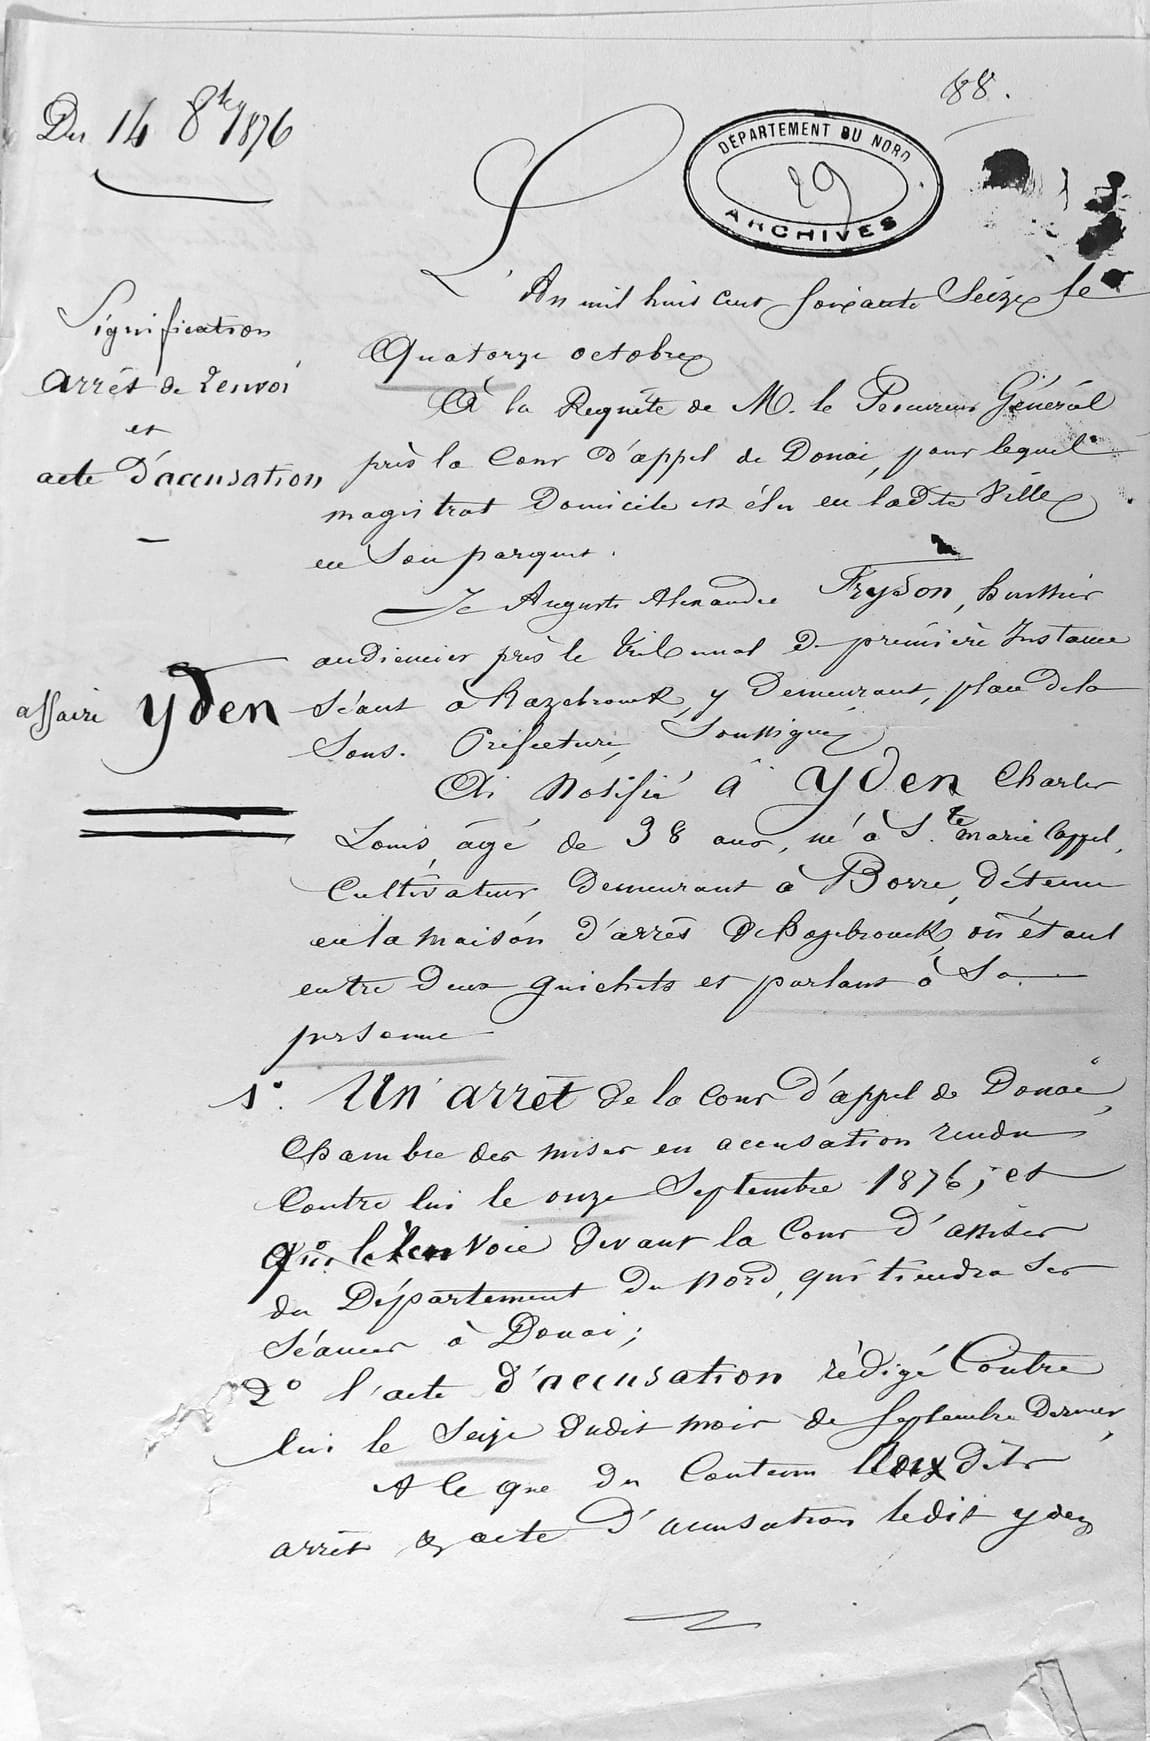 88.
Du 14 8bre 1876
DÉPARTEMENT DU NORD
29
ARCHIVES
Signification
arrêt de renvoi
et
acte d'accusation
affaire yden
L'An mil huit cent soixante Seize le
Quatorze octobre
A la Requête de M. le Procureur Général
près la Cour d'appel de Douai, pour lequel
magistrat Domicile est élu en ladte Ville
en Son parquet.
Je Auguste Alexandre Frydon, huissier
audiencier près le tribunal de première Instance
Séant à hazebrouck, y Demeurant, place de la
Sous-Préfecture, Soussigné
Ai Notifié à yden Charles
Louis, âgé de 38 ans, né à Ste marie Cappel,
Cultivateur Demeurant à Borre, détenu
en la maison d'arrêt d'hazebrouck, où étant
entre Deux guichets et parlant à Sa
personne
1°. Un arrêt de la Cour d'appel de Douai,
Chambre des mises en accusation rendu
Contre lui le onze Septembre 1876, et
qui le renvoie devant la Cour d'assises
du Département du nord, qui tiendra Ses
Séances à Douai;
2° l'acte d'accusation rédigé Contre
lui le Seize dudit mois de Septembre Dernier,
A Ce que du Contenu desdits
arrêt & acte d'accusation ledit yden